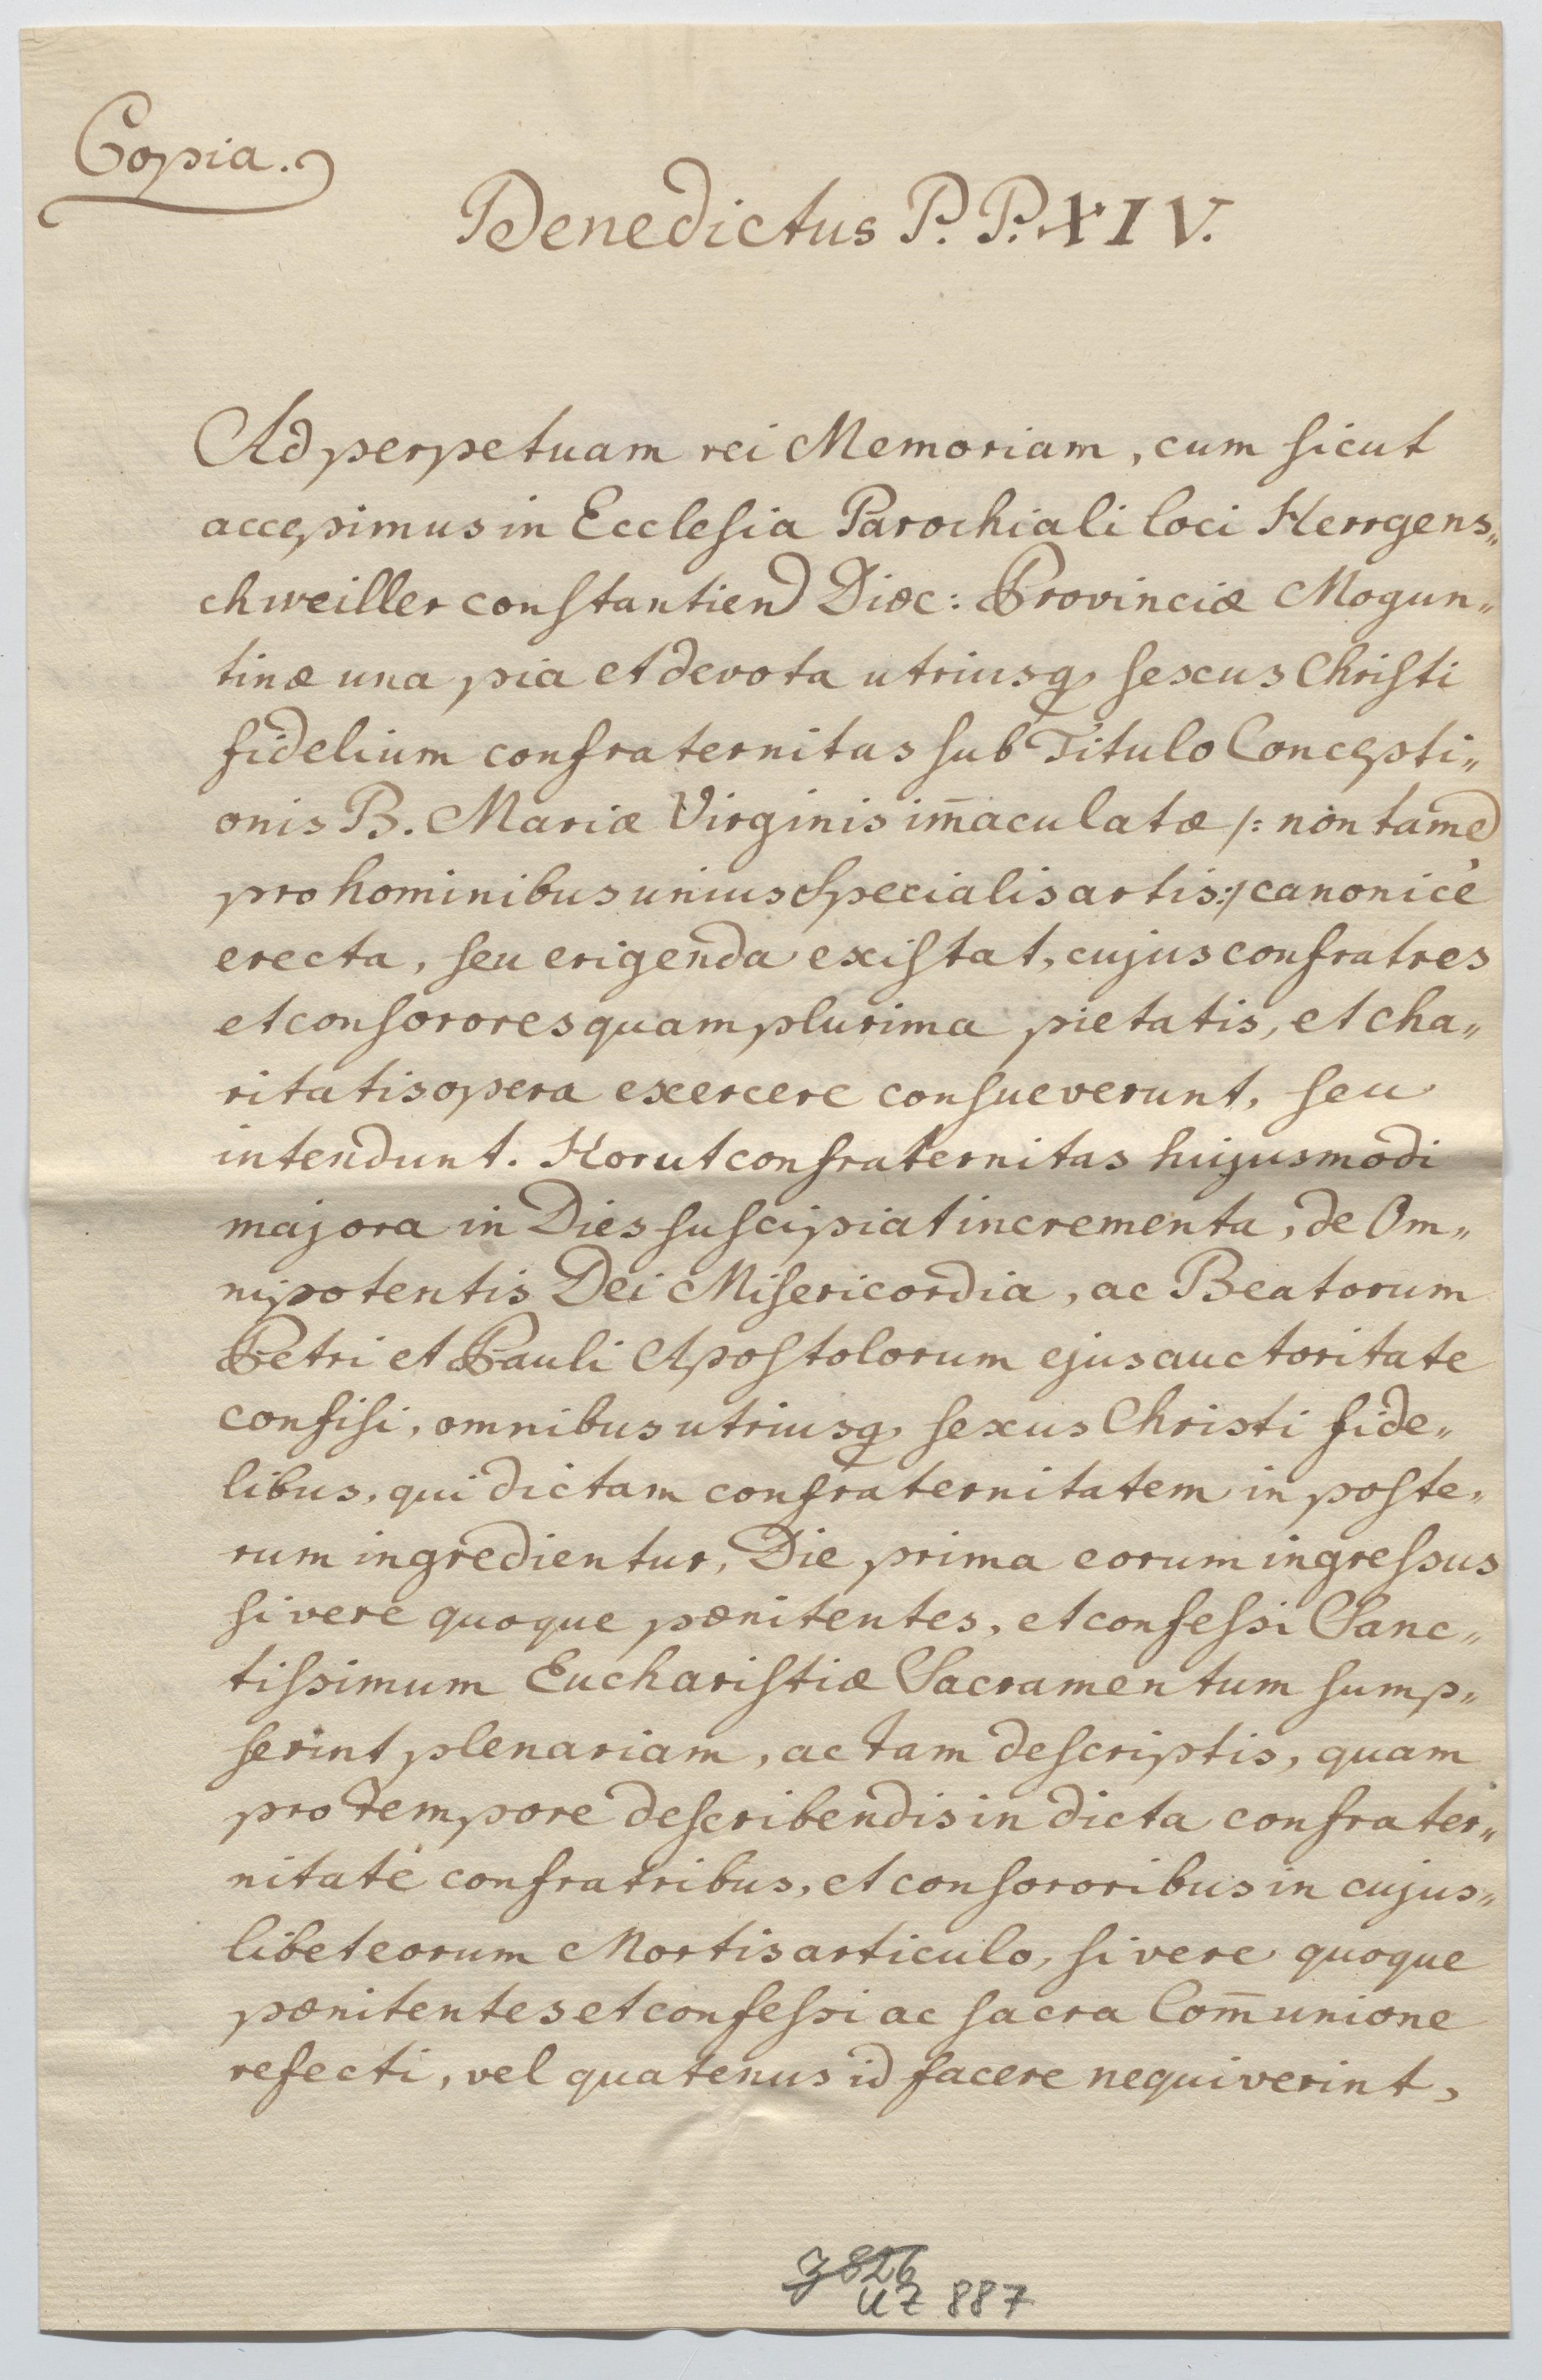 Copia.
Benedictus P. P. XIV.
Ad perpetuam rei Memoriam, cum sicut
accepimus in Ecclesia Parochiali loci Herrgens„
chweiller constantien Dioec: Provinciæ Mogun„
tinæ una pia et devota utriusq, sexus Christi
fidelium confraternitas sub Titulo Concepti„
onis B. Mariæ Virginis im̄aculatæ /: non tamen
pro hominibus unius Specialis artis :/ canonicè
erecta, seu erigenda existat, cujus confratres
et consorores quam plurima pietatis, et cha„
ritatis opera exercere consueverunt, seu
intendunt. Nos ut confraternitas hujusmodi
majora in Dies suscipiat incrementa, de Om„
nipotentis Dei Misericordia, ac Beatorum
Petri et Pauli Apostolorum ejus auctoritate
confisi, omnibus utriusq, sexus Christi fide„
libus, qui dictam confraternitatem in poste„
rum ingredientur, Die prima eorum ingressus
si vere quoque pœnitentes, et confessi Sanc„
tissimum Eucharistiæ Sacramentum sump„
serint plenariam, ac tam descriptis, quam
pro tempore describendis in dicta confrater„
nitate confratribus, et consororibus in cujus„
libet eorum Mortis articulo, si vere quoque
pœnitentes et confessi ac sacra Com̄unione
refecti, vel quatenus id facere nequiverint,
Z 826
UZ 887